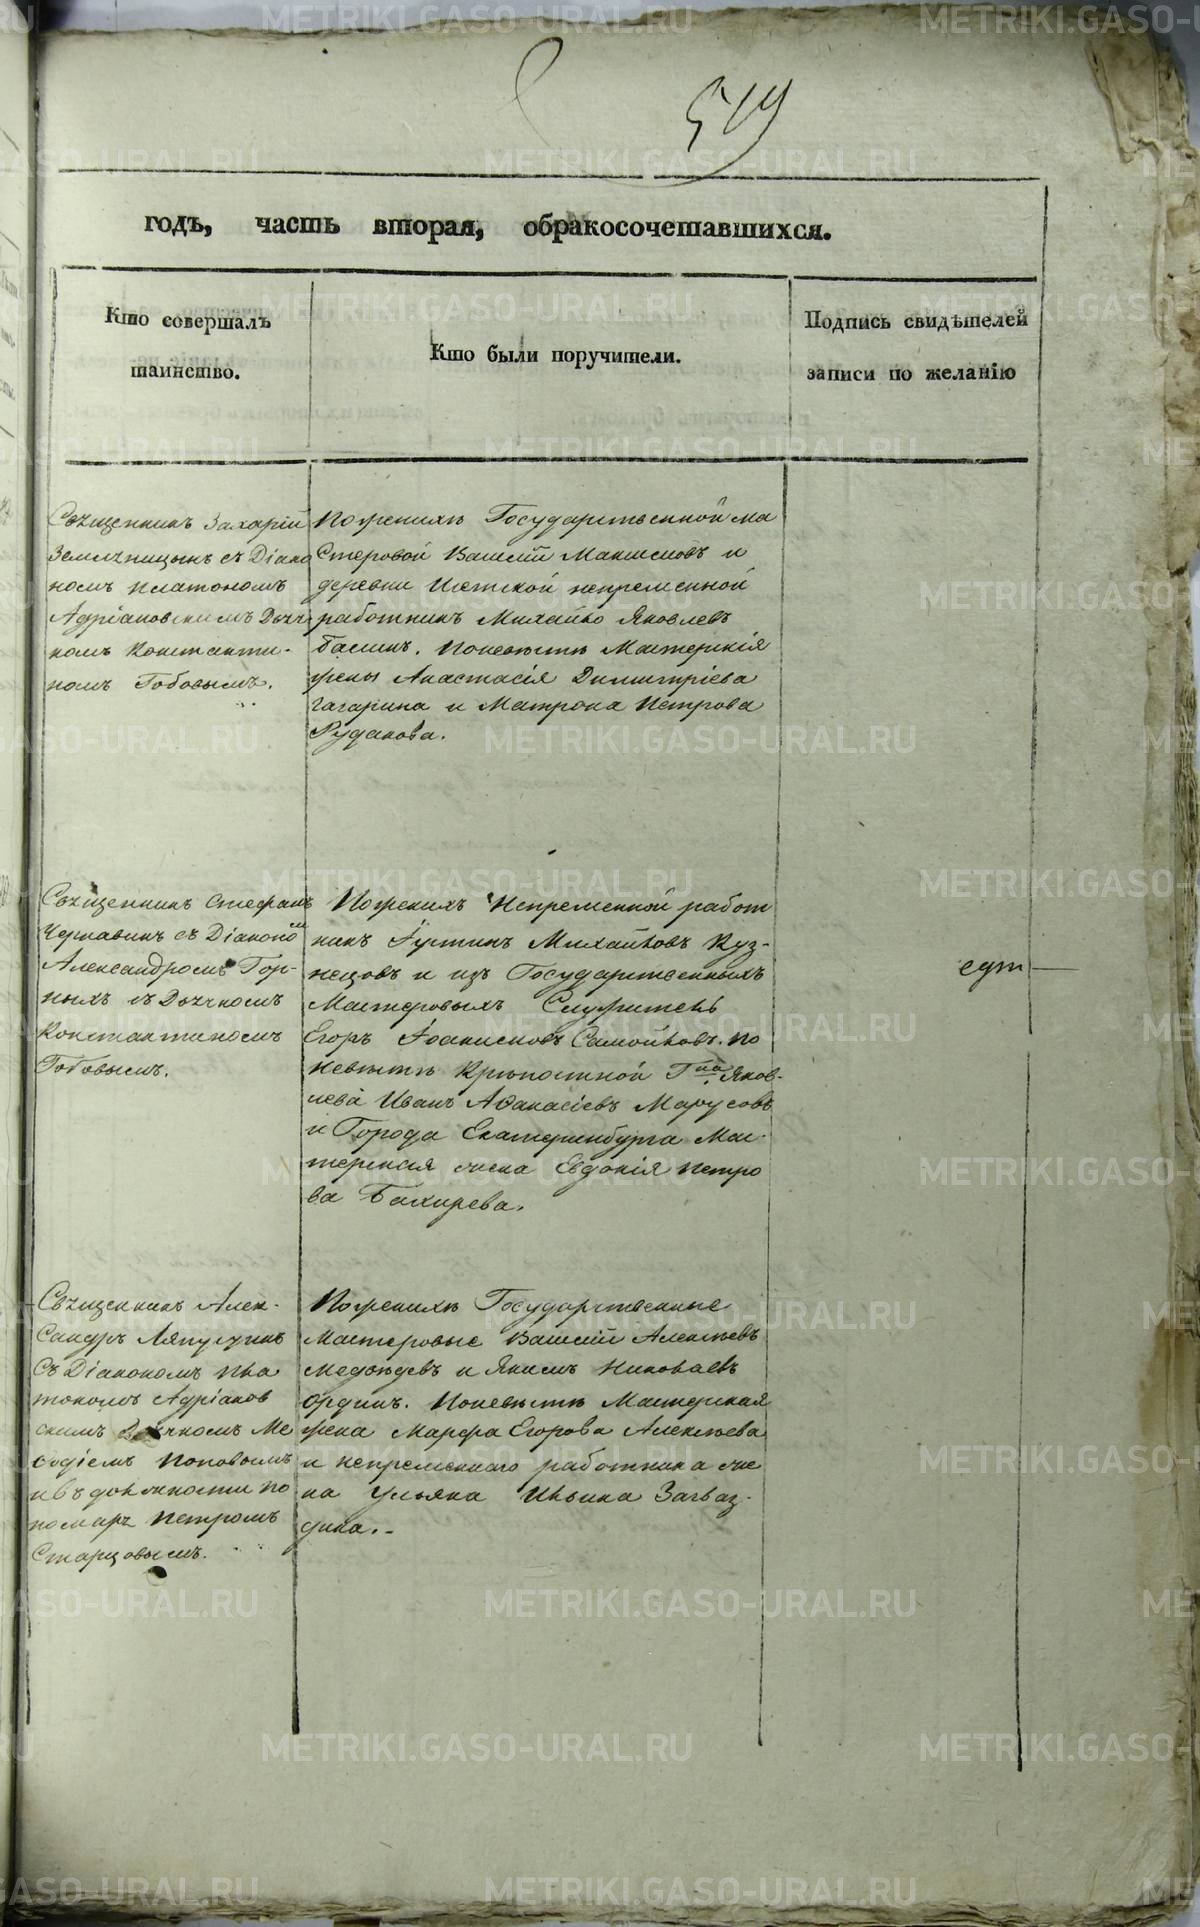 519
годъ, часть вторая, обракосочетавшихся.
Кто совершалъ
таинство.
Кто были поручители.
Подпись свидѣтелей
записи по желанію
Священникъ Захарій
Земляницынъ съ Діако
номъ Платономъ
Адріановскимъ Дьяч-
комъ Константи-
номъ Гобовымъ.
По женихѣ Государственной ма
стеровой Василій Максимовъ и
деревни Истской непременной
работникъ Михайло Яковлевъ
Басинъ. По невѣстѣ Мастерскія
жены Анастасія Димитріева
Гагарина и Матрона Петрова
Рудакова.
Священникъ Стефанъ
Чернавинъ съ Діакономъ
Александромъ Гор-
ныхъ съ Дьячкомъ
Константиномъ
Гобовымъ.
По женихѣ Непременной работ
никъ Іустинъ Михайловъ Куз-
нецовъ и изъ Государственныхъ
Мастеровыхъ Служитель
Егоръ Іоанникіевъ Самойловъ. По
невѣстѣ Крѣпостной Гна Яков-
лева Иванъ Аѳанасіевъ Марусовъ
и Города Екатеринбурга Мас-
терская жена Евдокія Петро
ва Бахирева.
едт
Священникъ Алек-
сандръ Ляпустинъ
съ Діакономъ Пла
тономъ Адріанов
скимъ Дьячкомъ Ме
ѳодіемъ Поповымъ
и въ должности по
номаря Петромъ
Старцовымъ.
По женихѣ Государственные
Мастеровые Василій Алексѣевъ
Медвѣдевъ и Якимъ Николаевъ
Ординъ. По невѣстѣ Мастерская
жена Марфа Егорова Алексѣева
и непременнаго работника же
на Ульяна Ильина Загваз-
дина.
METRIKI.GASO-URAL.RU